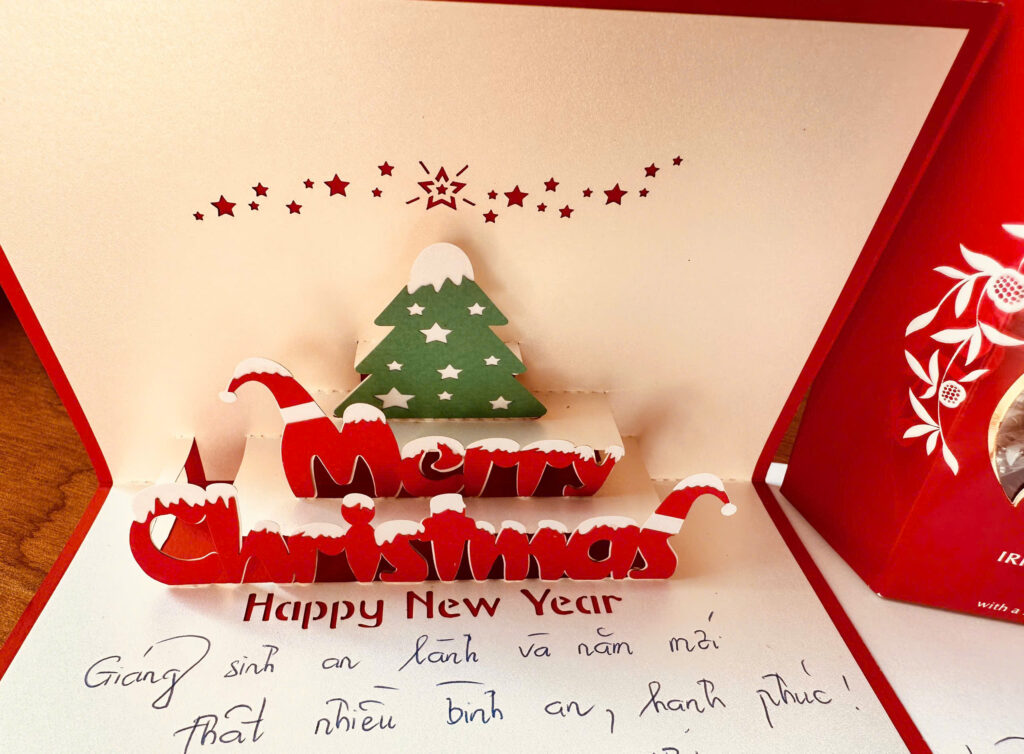 Merry
Christmas
Happy New Year
Giáng sinh an lành và năm mới
thật nhiều bình an, hạnh phúc!
with a